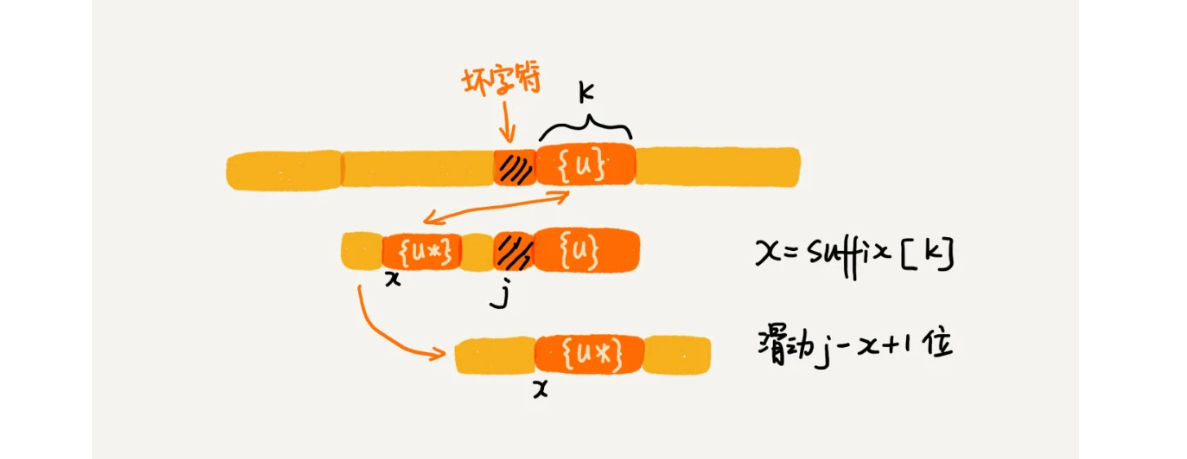 坏字符
K
{u}
{u*} {u}
x j
x=suffix[k]
滑动j-x+1位
{u*}
x